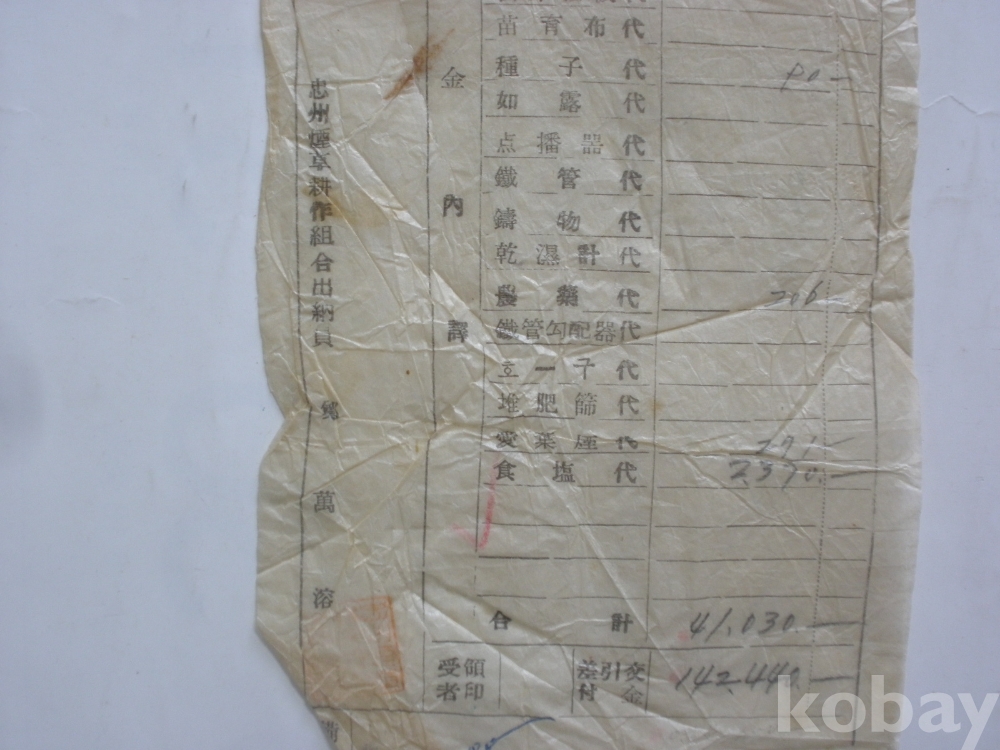 苗育布代
種子代 80 —
如露代
点播器代
鐵管代
鑄物代
乾濕計代
農藥代 206 —
鐵管勾配器代
호ー구代
堆肥篩代
愛葉煙代 291 —
食塩代 2,370 —
合計 41,030 —
差引交付金 142,440 —
領受者印
金內譯
忠州煙草耕作組合出納員
萬溶
kobay